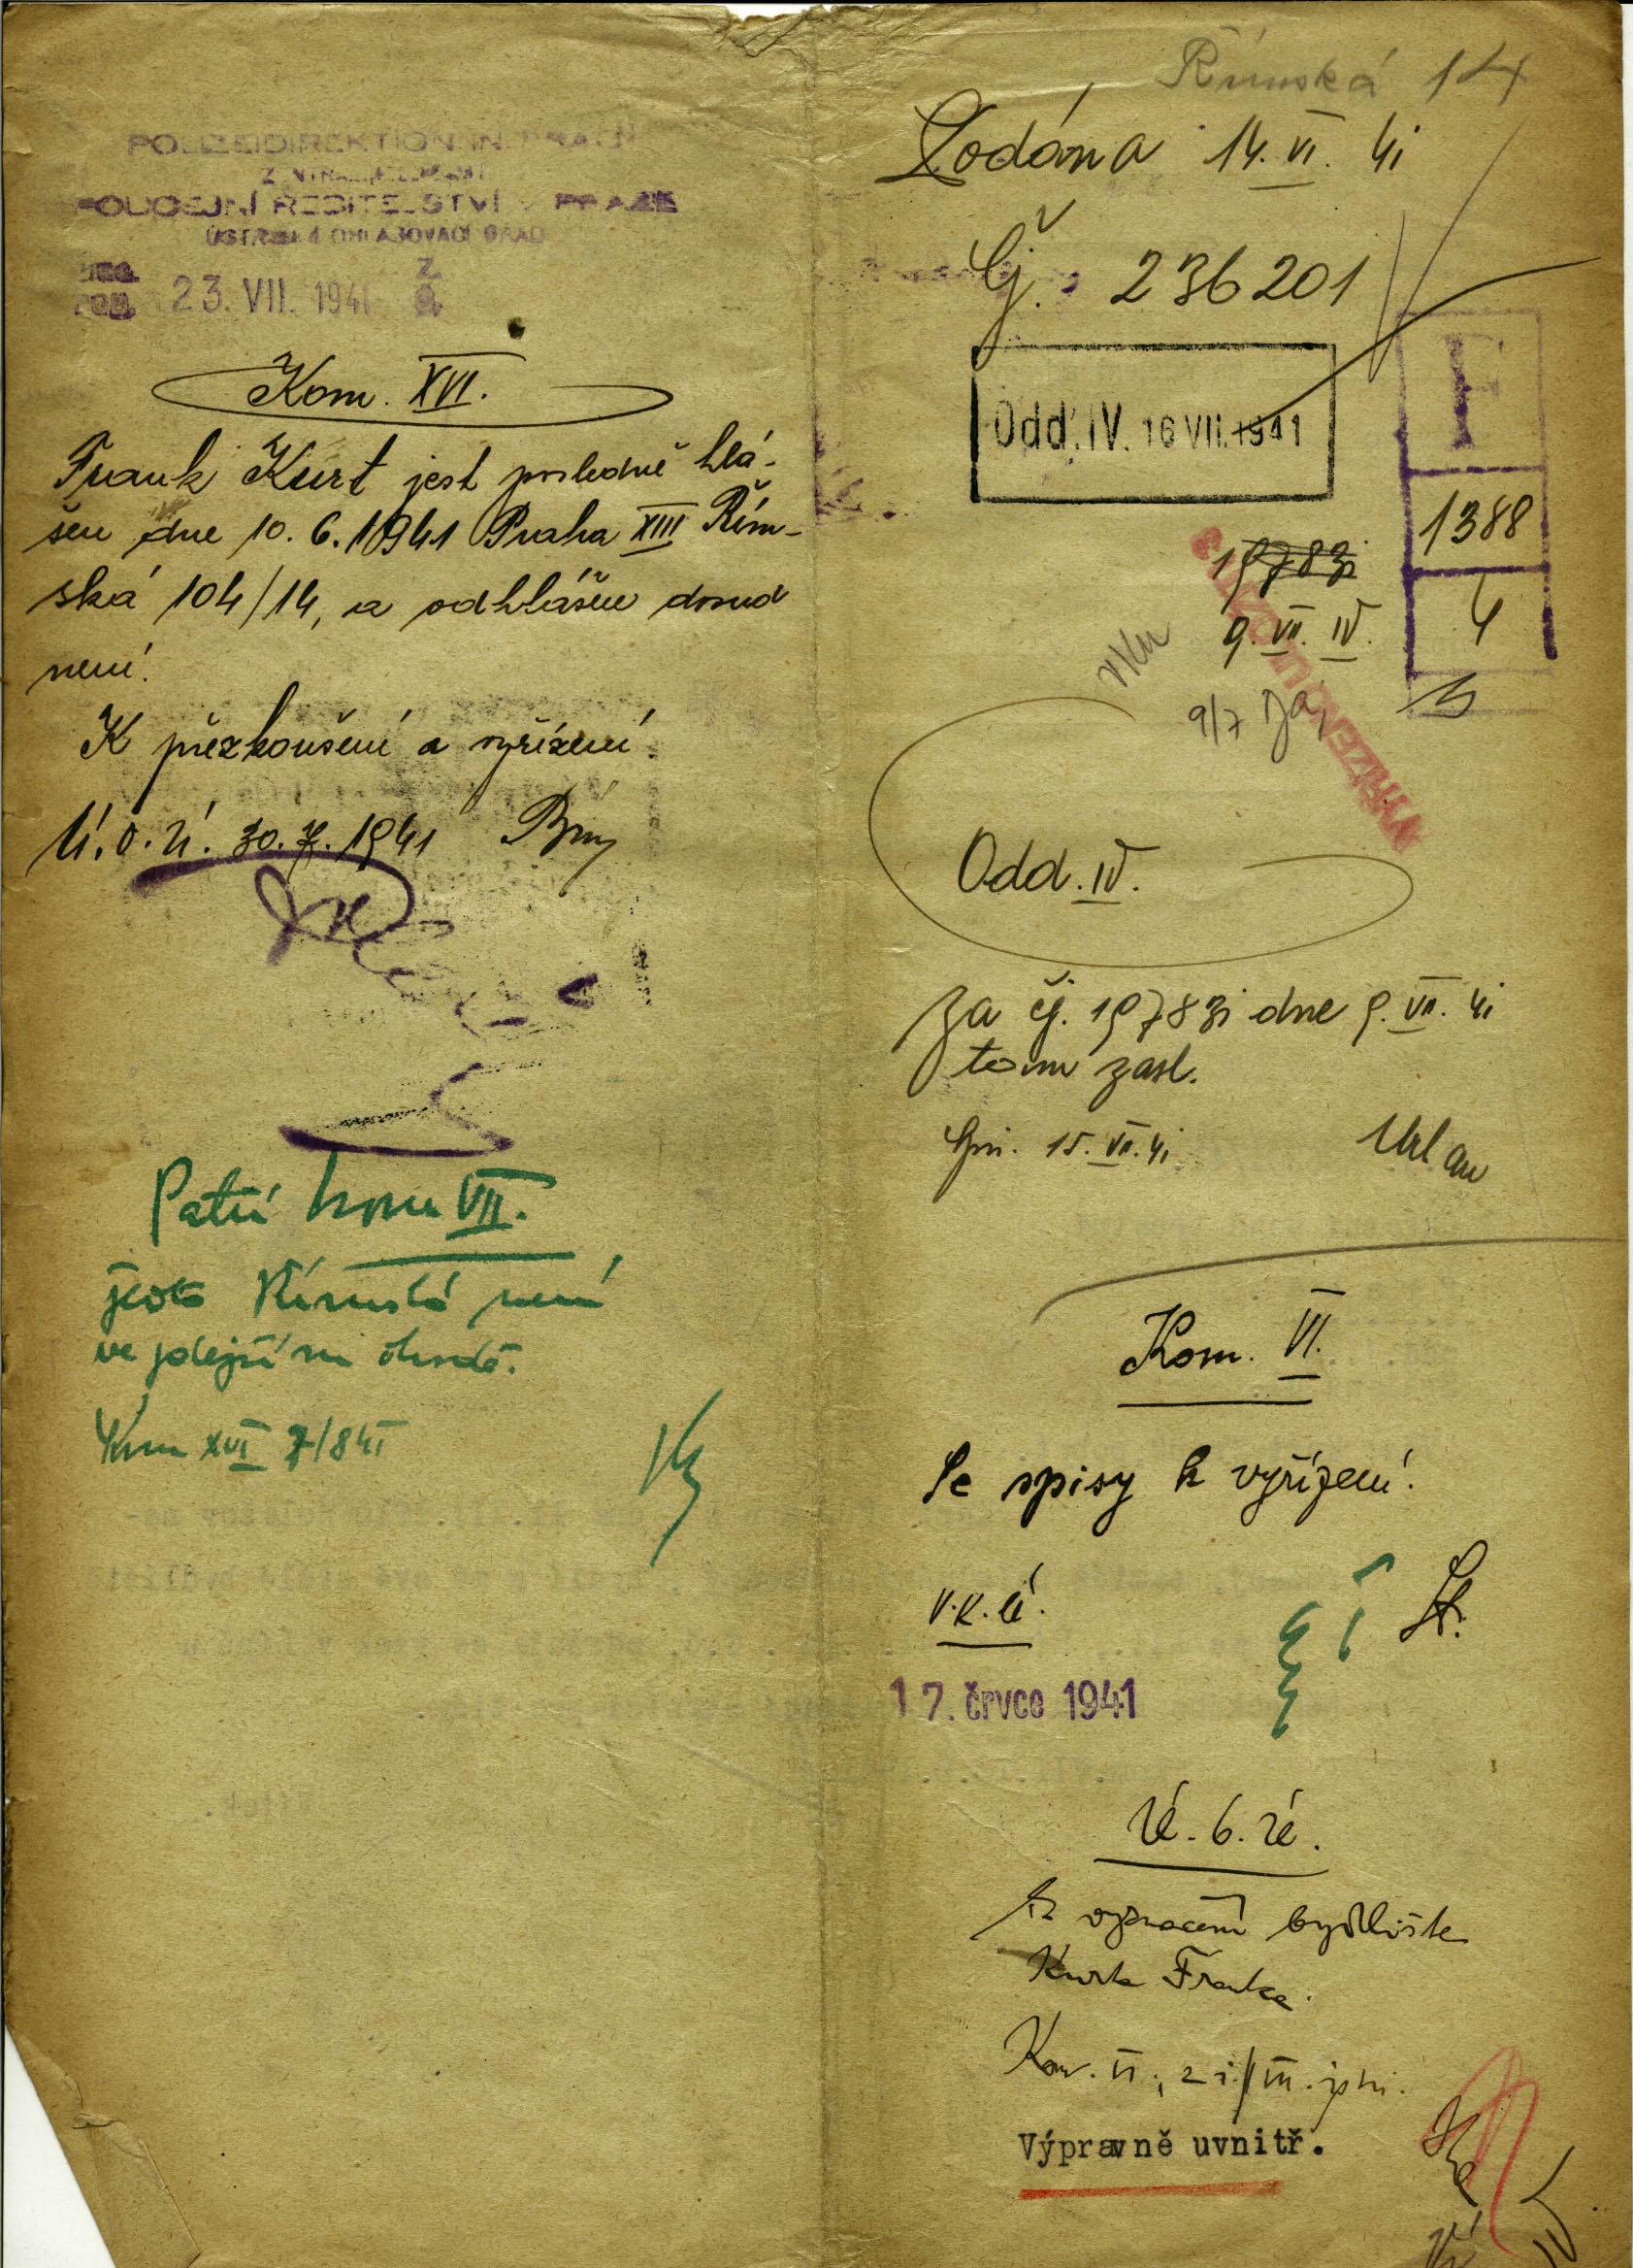 POLIZEIDIREKTION IN PRAG
POLICEJNÍ ŘEDITELSTVÍ V PRAZE
ÚSTŘEDNÍ OHLAŠOVACÍ ÚŘAD
23. VII. 1941
Kom. XVI.
Frank Kurt jest posledně hlá-
šen dne 10. 6. 1941 Praha XIII Řím-
ská 104/14, a odhlášen dosud
není.
K přezkoušení a vyřízení.
Ú. O. Ú. 30. 7. 1941
Patří kom VII.
Římská není
ve zdejším obvodě.
Kom XVI 7/8 41
Římská 14
Dodána 14. VI. 41
Čj. 236201
Odd. IV. 16 VII. 1941
F
1388
4
19783i
9. VII. IV.
9/7
Odd. IV.
Za čj. 19783i dne 9. VII. 41
tam zasl.
15. VII. 41
Urban
Kom. VI.
Se spisy k vyřízení.
V.K.Ú.
17. črvce 1941
Ú. O. Ú.
K vypracení bydliště
Kurta Franka.
Kom. VI.,
Výpravně uvnitř.